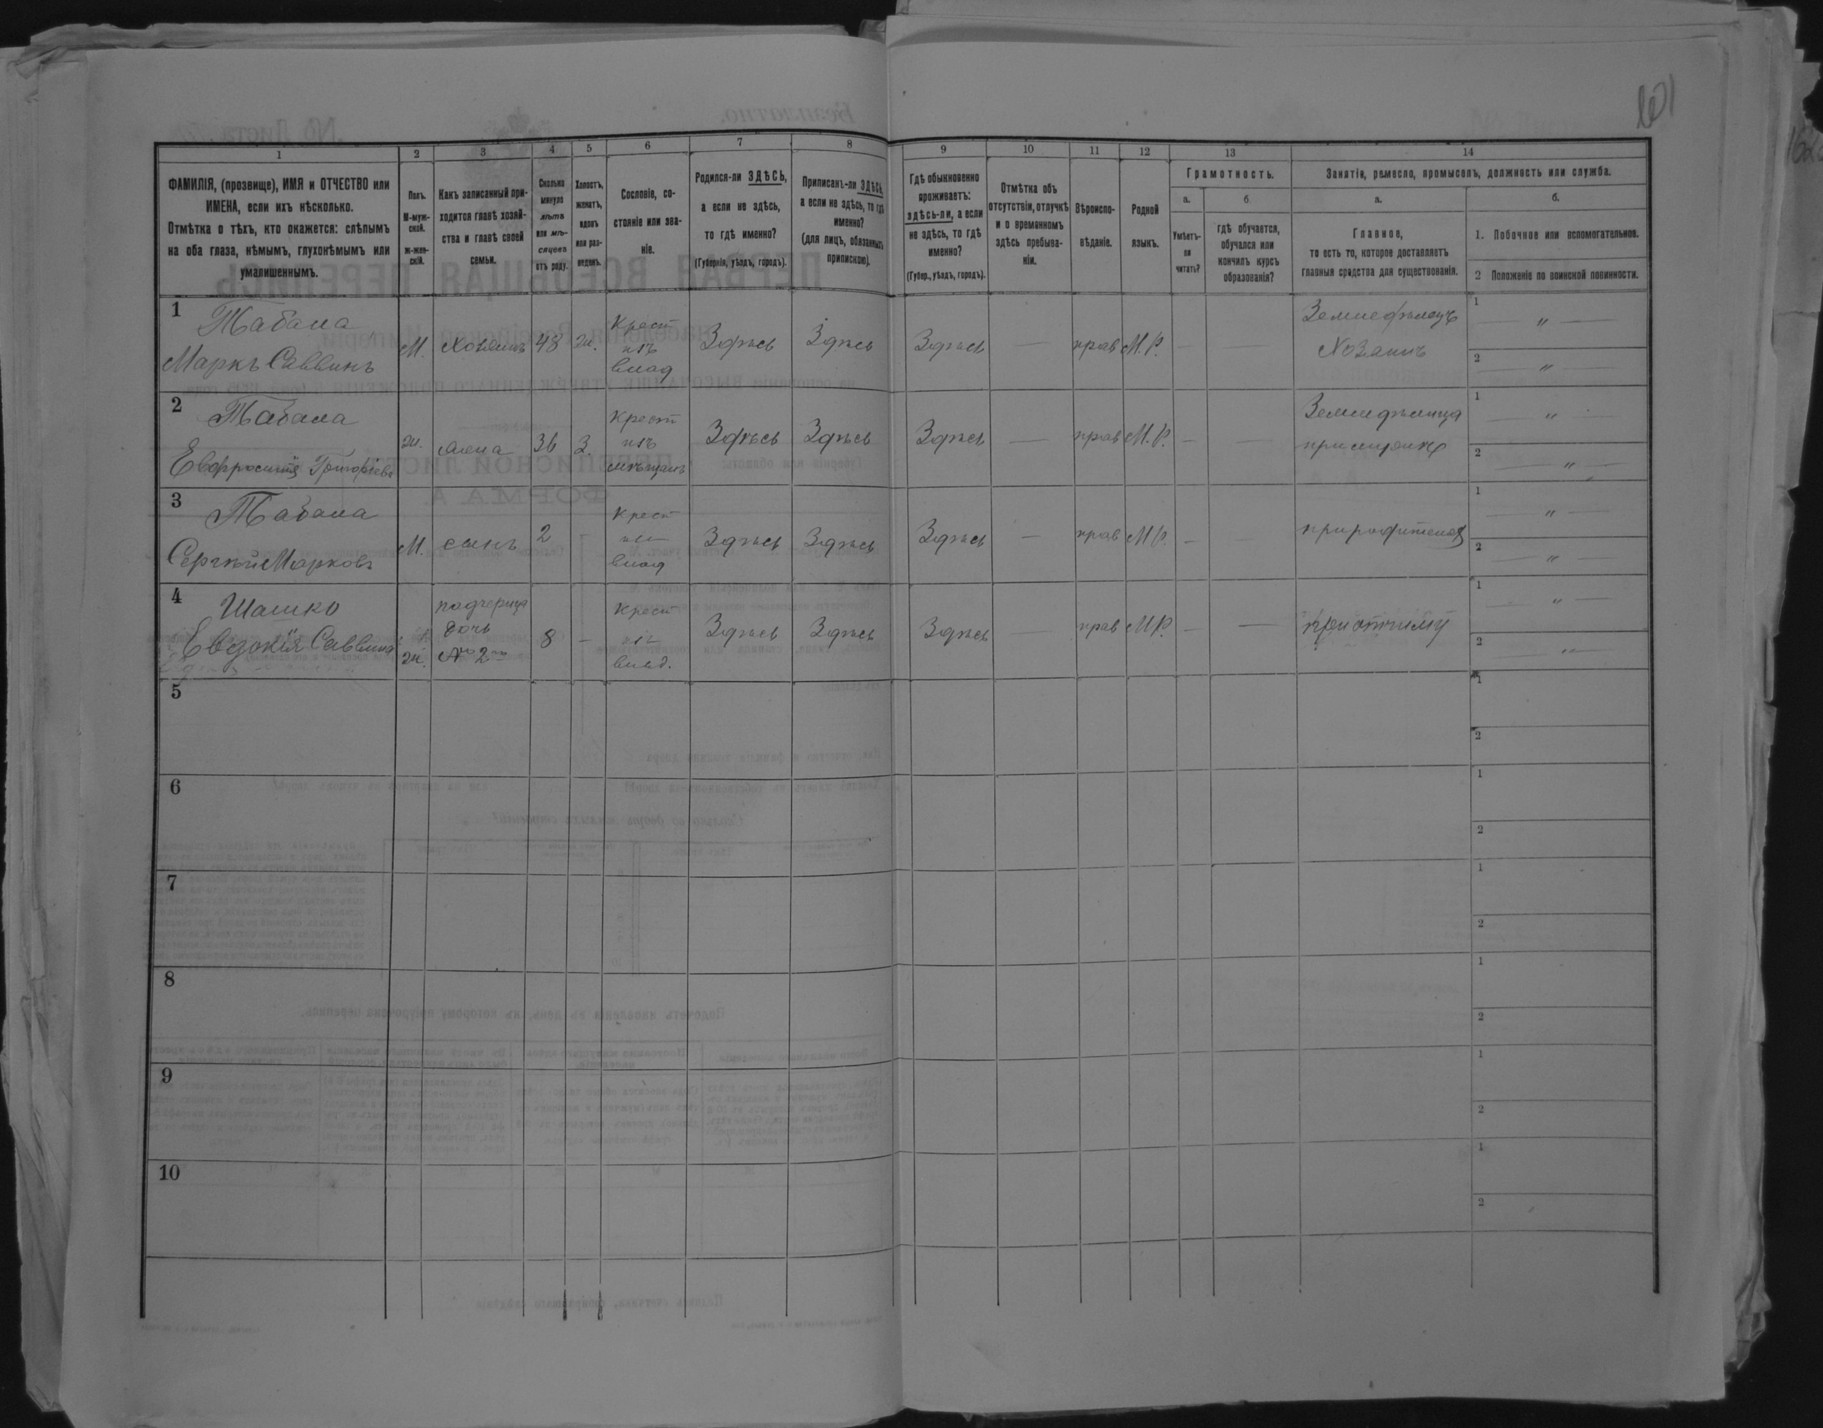 101
1
2
3
4
5
6
7
8
9
10
11
12
13
14
ФАМИЛІЯ, (прозвище), ИМЯ и ОТЧЕСТВО или
ИМЕНА, если ихъ нѣсколько.
Отмѣтка о тѣхъ, кто окажется: слѣпымъ
на оба глаза, нѣмымъ, глухонѣмымъ или
умалишеннымъ.
Полъ.
М-муж-
ской.
ж-жен-
скій.
Какъ записанный при-
ходится главѣ хозяй-
ства и главѣ своей
семьи.
Сколько
минуло
лѣтъ
или мѣ-
сяцевъ
отъ роду.
Холостъ,
женатъ,
вдовъ
или раз-
веденъ.
Сословіе, со-
стояніе или зва-
ніе.
Родился-ли ЗДѢСЬ,
а если не здѣсь,
то гдѣ именно?
(Губернія, уѣздъ, городъ).
Приписанъ-ли ЗДѢСЬ,
а если не здѣсь, то гдѣ
именно?
(для лицъ, обязанныхъ
припискою).
Гдѣ обыкновенно
проживаетъ:
здѣсь-ли, а если
не здѣсь, то гдѣ
именно?
(Губер., уѣздъ, городъ).
Отмѣтка объ
отсутствіи, отлучкѣ
и о временномъ
здѣсь пребыва-
ніи.
Вѣроиспо-
вѣданіе.
Родной
языкъ.
Грамотность.
а.
Умѣетъ-
ли
читать?
б.
гдѣ обучается,
обучался или
кончилъ курсъ
образованія?
Занятіе, ремесло, промыселъ, должность или служба.
а.
Главное,
то есть то, которое доставляетъ
главныя средства для существованія.
б.
1. Побочное или вспомогательное.
2 Положеніе по воинской повинности.
1
Табала
Маркъ Саввинъ
М.
Хозяинъ
48
ж.
Крест
изъ
влад
Здѣсь
Здѣсь
Здѣсь
—
прав
М.Р.
—
—
Земледѣлецъ
Хозяинъ
1 — " —
2 — " —
2
Табала
Евфросинія Григорьева
ж.
жена
36
З.
Крест
изъ
Здѣсь
Здѣсь
Здѣсь
—
прав
М.Р.
—
—
1 — " —
2 — " —
3
Табала
Сергѣй Марковъ
М.
сынъ
2
-
Крест
изъ
влад
Здѣсь
Здѣсь
Здѣсь
—
прав
М.Р.
—
—
при родителяхъ
1 — " —
2 — " —
4
Шашко
Евдокія Саввина
ж.
падчерица
дочь
№ 2
8
—
Крест
изъ
влад.
Здѣсь
Здѣсь
Здѣсь
—
прав
М.Р.
—
—
при отчиму
1 — " —
2 — " —
5
1
2
6
1
2
7
1
2
8
1
2
9
1
2
10
1
2